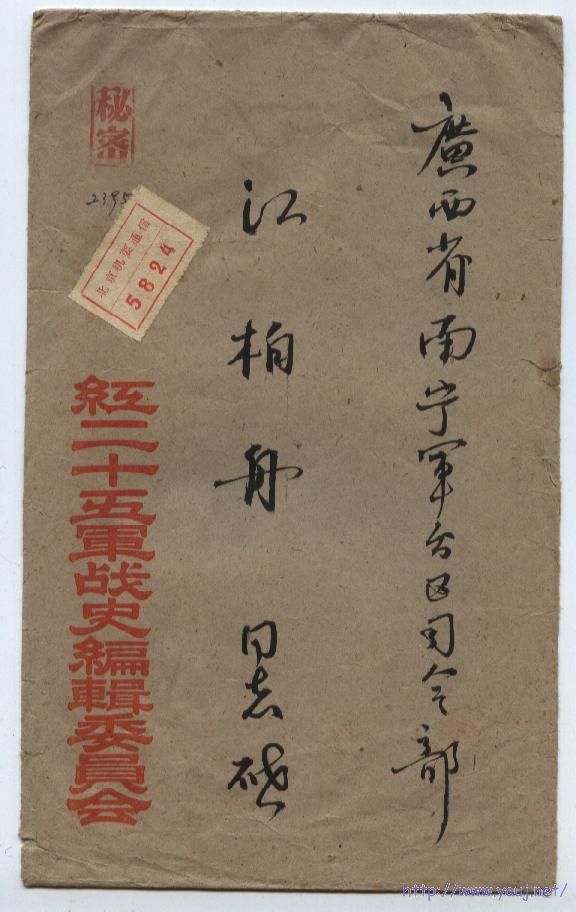 廣西省南宁軍分区司令部
江柏舟同志
秘密
2395
北京机要通信
5824
紅二十五軍战史編輯委員会
http://www.youj.net/